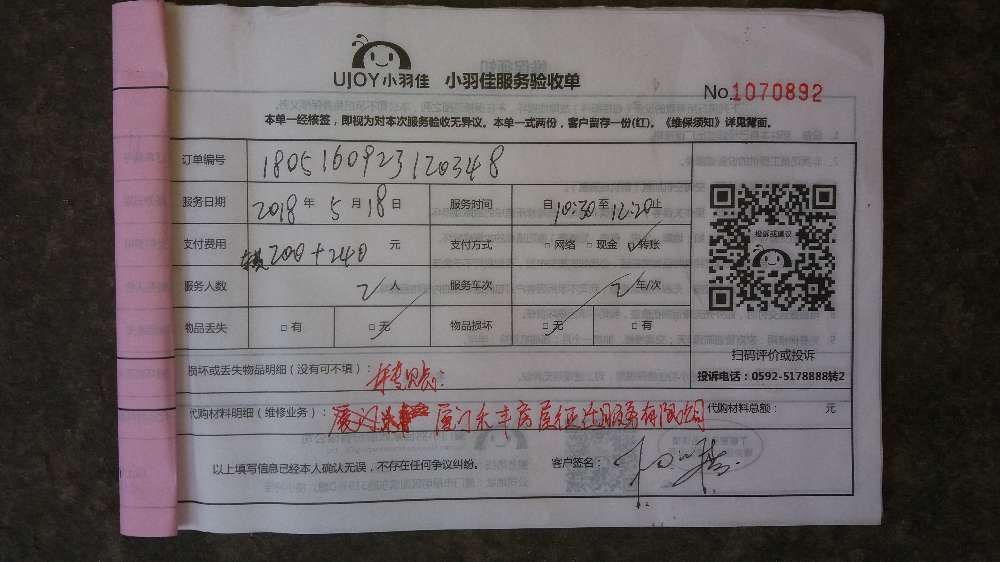 UJOY小羽佳 小羽佳服务验收单
No.1070892
本单一经核签，即视为对本次服务验收无异议。本单一式两份，客户留存一份(红)。《维保须知》详见背面。
订单编号 180516092312０348
服务日期 2018年5月18日 服务时间 自10:30至12:20止
支付费用 200+240元 支付方式 □网络 □现金 □转账
服务人数 2人 服务车次 2车/次
物品丢失 □有 □无 物品损坏 □无 □有
投诉或建议
扫码评价或投诉
投诉电话：0592-5178888转2
损坏或丢失物品明细（没有可不填）：转账
代购材料明细（维修业务）：厦门禾丰房屋征迁服务有限公司 代购材料总额： 元
以上填写信息已经本人确认无误，不存在任何争议纠纷。 客户签名：